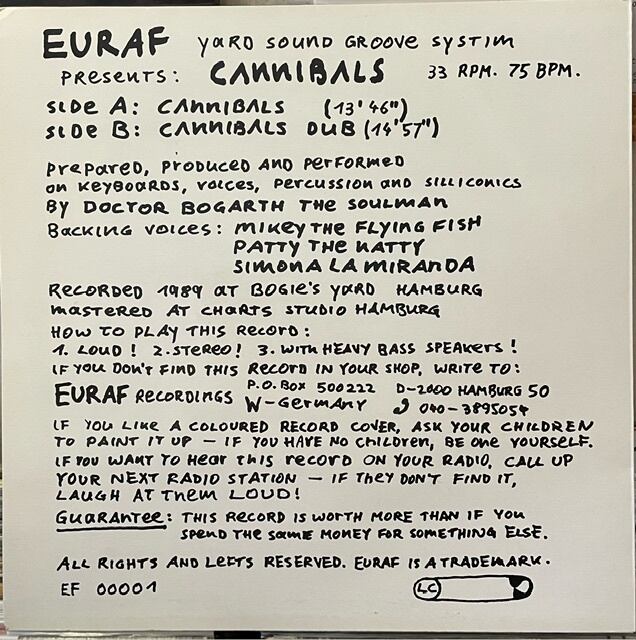 EURAF YARD SOUND GROOVE SYSTIM
PRESENTS: CANNIBALS 33 RPM. 75 BPM.
SIDE A: CANNIBALS (13'46")
SIDE B: CANNIBALS DUB (14'57")
PREPARED, PRODUCED AND PERFORMED
ON KEYBOARDS, VOICES, PERCUSSION AND SILLICONICS
BY DOCTOR BOGARTH THE SOULMAN
BACKING VOICES: MIKEY THE FLYING FISH
PATTY THE NATTY
SIMONA LA MIRANDA
RECORDED 1989 AT BOGIE'S YARD HAMBURG
MASTERED AT CHARTS STUDIO HAMBURG
HOW TO PLAY THIS RECORD:
1. LOUD! 2. STEREO! 3. WITH HEAVY BASS SPEAKERS!
IF YOU DON'T FIND THIS RECORD IN YOUR SHOP, WRITE TO:
EURAF RECORDINGS P.O. BOX 500222 D-2000 HAMBURG 50
W-GERMANY 040-3895054
IF YOU LIKE A COLOURED RECORD COVER, ASK YOUR CHILDREN
TO PAINT IT UP — IF YOU HAVE NO CHILDREN, BE ONE YOURSELF.
IF YOU WANT TO HEAR THIS RECORD ON YOUR RADIO, CALL UP
YOUR NEXT RADIO STATION — IF THEY DON'T FIND IT,
LAUGH AT THEM LOUD!
GUARANTEE: THIS RECORD IS WORTH MORE THAN IF YOU
SPEND THE SAME MONEY FOR SOMETHING ELSE.
ALL RIGHTS AND LEFTS RESERVED. EURAF IS A TRADEMARK.
EF 00001 LC